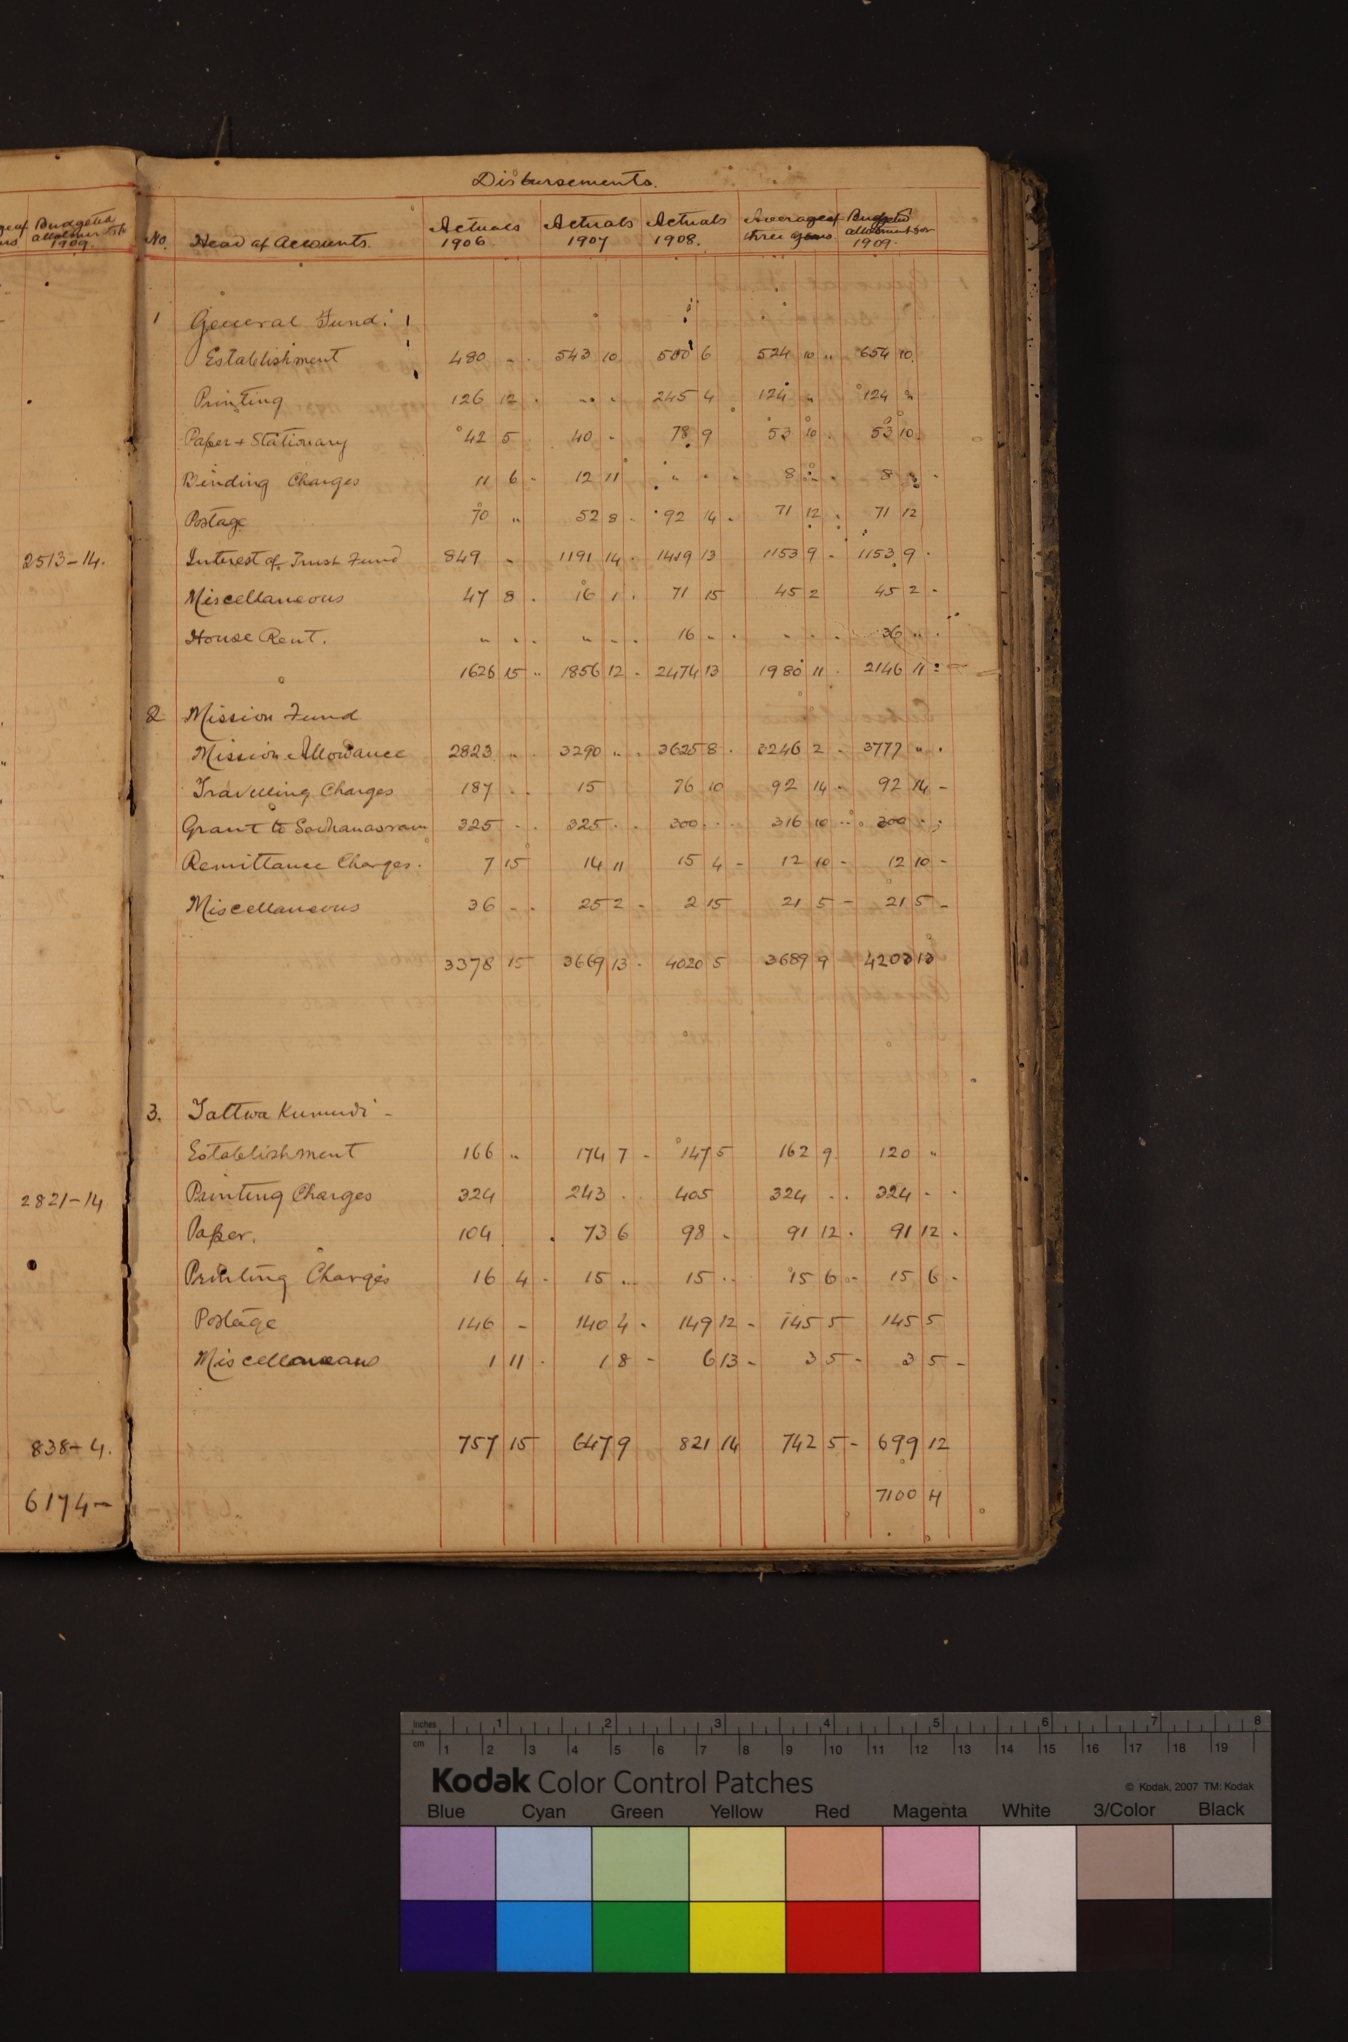 Budgeted
allotments
1909.
2513-14.
2821-14
838-4.
6174-
Disbursements.
No. Head of Accounts. Actuals 1906 Actuals 1907 Actuals 1908. Average of three years Budgeted allotment for 1909.
1 General Fund.
Establishment 480 - . 543 10 500 6 524 10 " 654 10
Printing 126 12 . " . . 245 4 124 " 124 "
Paper + Stationary 42 5 40 - 78 9 53 10 . 53 10.
Binding Charges 11 6 - 12 11 " . . 8 " . 8 " .
Postage 70 " 52 8 . 92 14 . 71 12 . 71 12
Interest of Trust Fund 849 - 1191 14 . 1419 13 1153 9 - 1153 9 .
Miscellaneous 47 8 . 16 1 . 71 15 45 2 45 2 -
House Rent. " . . " . . 16 - . - . . 36 " .
1626 15 " 1856 12 . 2474 13 1980 11 . 2146 11
2 Mission Fund
Mission Allowance 2823 " . 3290 " . 3625 8 . 3246 2 - 3777 " .
Travelling Charges 187 . . 15 76 10 92 14 - 92 14 -
Grant to Sadhanasram 325 - . 325 . . 300 . . 316 10 300 .
Remittance Charges. 7 15 14 11 15 4 - 12 10 - 12 10 -
Miscellaneous 36 - . 25 2 - 2 15 21 5 - 21 5 -
3378 15 3669 13 . 4020 5 3689 9 4203 13
3. Tattwa Kumudi -
Establishment 166 " 174 7 - 147 5 162 9. 120 "
Printing Charges 324 243 . . 405 324 . . 324 - .
Paper. 104 73 6 98 - 91 12 . 91 12 .
Printing Charges 16 4 - 15 .. 15 .. 15 6 - 15 6 -
Postage 146 - 140 4 - 149 12 - 145 5 145 5
Miscellaneous 1 11 . 1 8 - 6 13 - 3 5 - 3 5 -
757 15 647 9 821 14 742 5 - 699 12
7100 4
inches 1 2 3 4 5 6 7 8
cm 1 2 3 4 5 6 7 8 9 10 11 12 13 14 15 16 17 18 19
Kodak Color Control Patches © Kodak, 2007 TM: Kodak
Blue Cyan Green Yellow Red Magenta White 3/Color Black